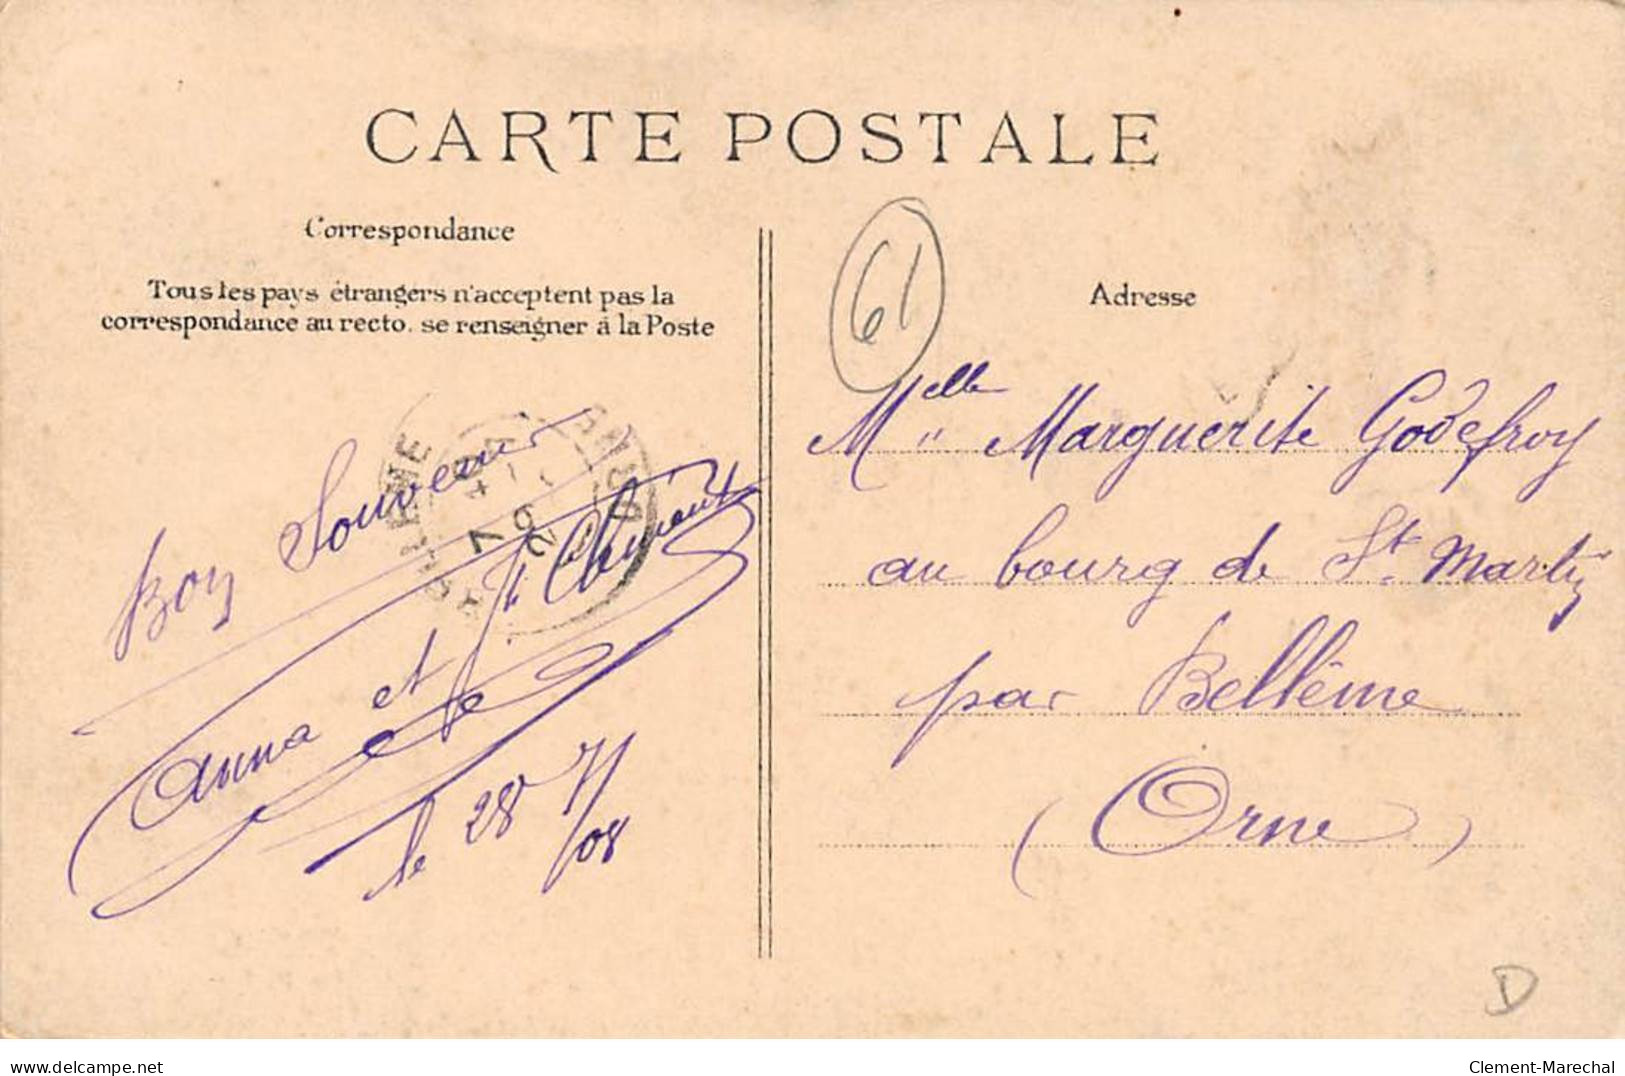 CARTE POSTALE
Correspondance
Tous les pays étrangers n'acceptent pas la
correspondance au recto, se renseigner à la Poste
Bon Souvenir
Anna et
le 28 7/08
61
Adresse
Melle Marguerite Godefroy
au bourg de St. Martin
par Bellême
(Orne)
BELLÊME
ORNE
D
delcampe.net
Clement-Marechal